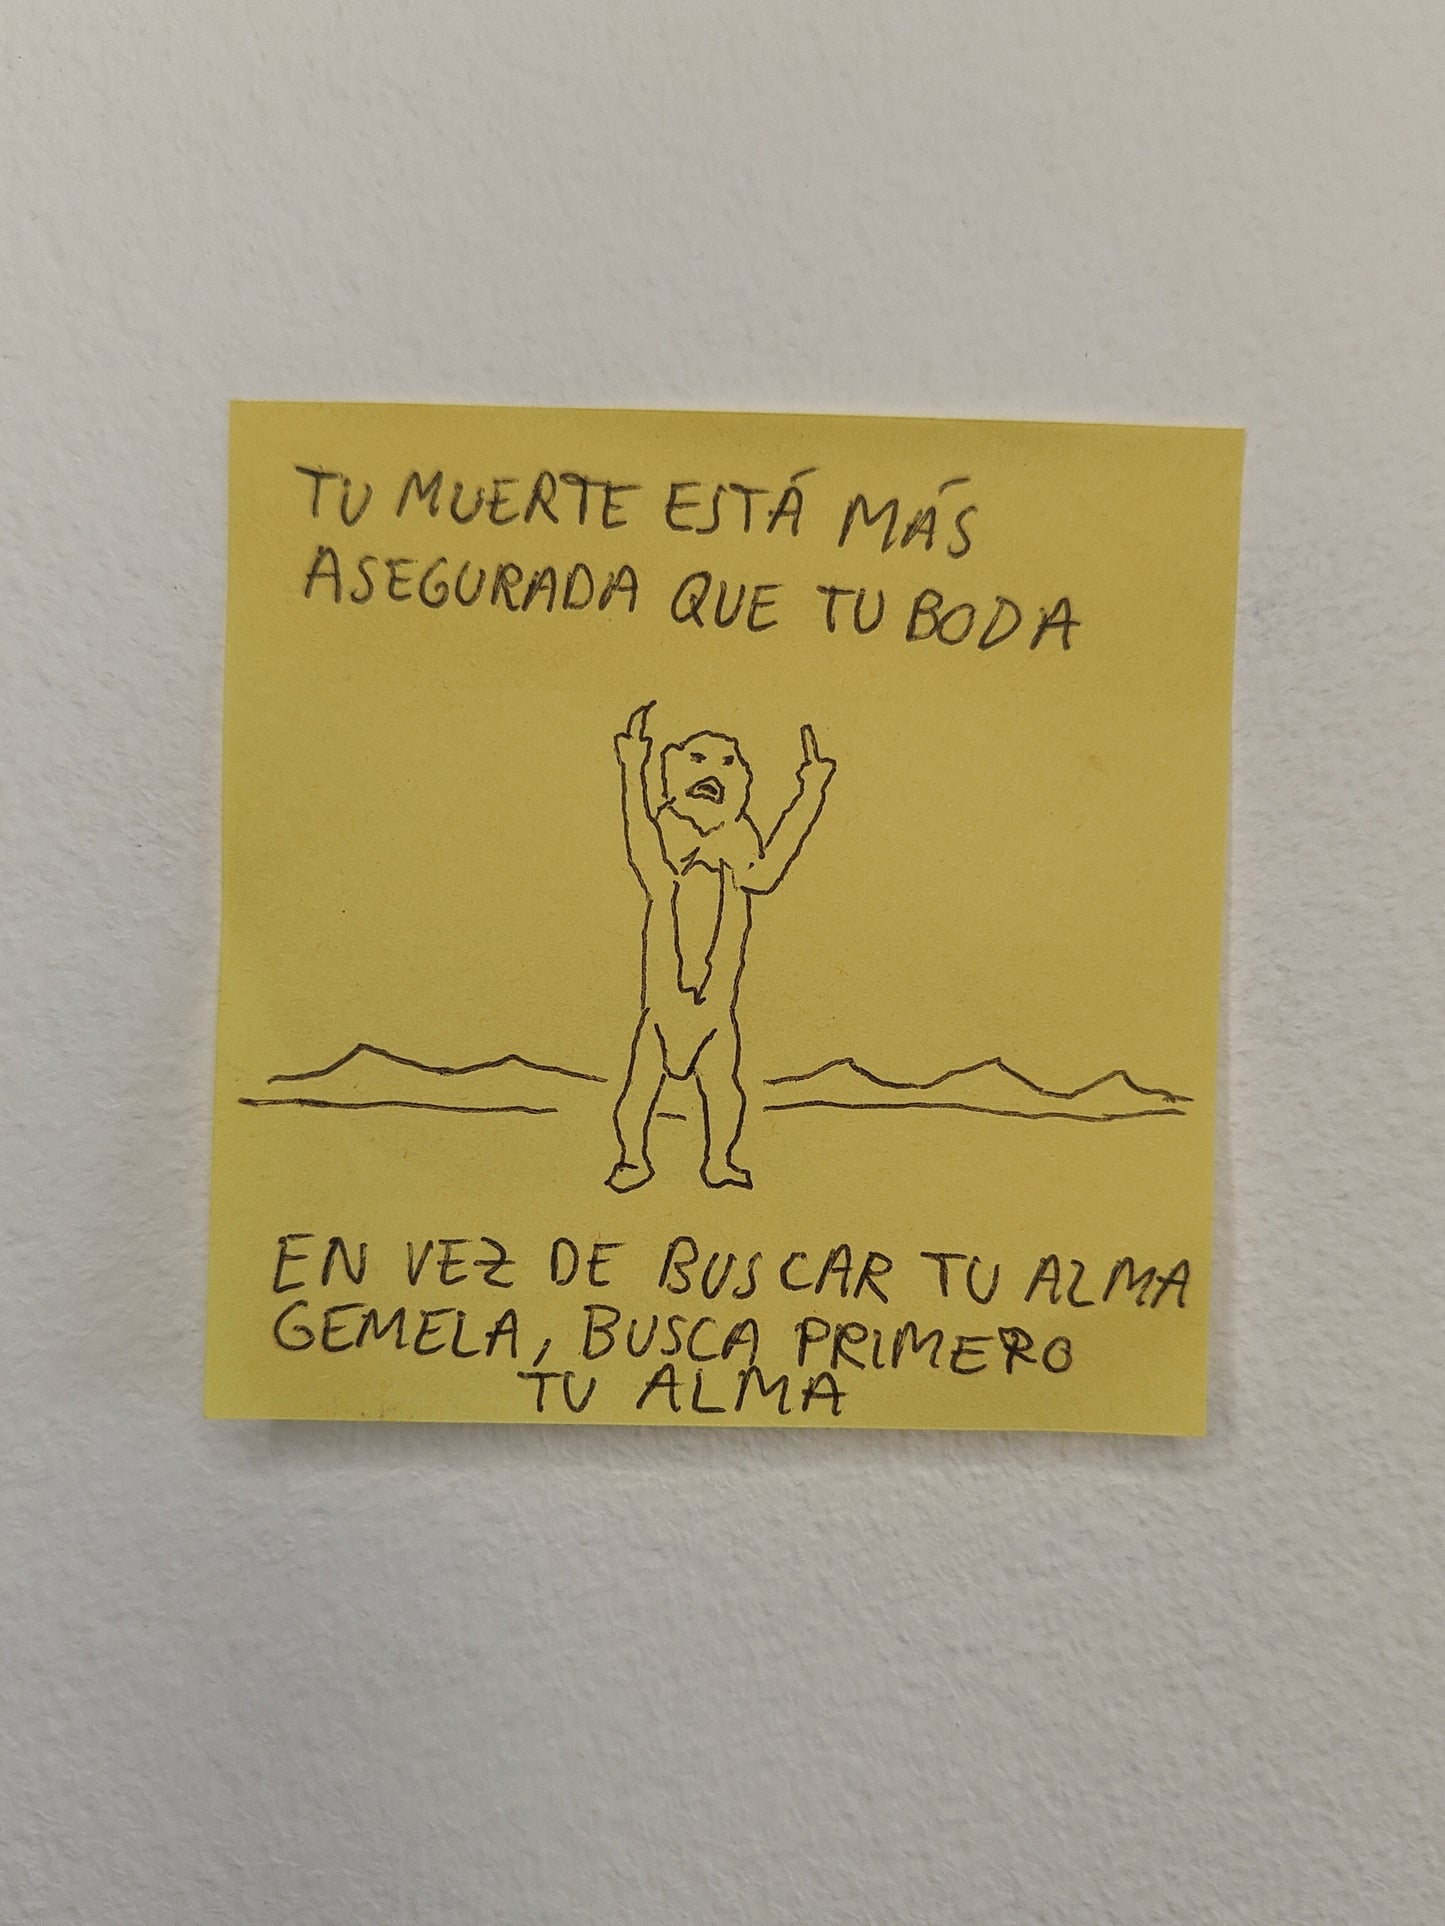 TU MUERTE ESTÁ MÁS
ASEGURADA QUE TU BODA
EN VEZ DE BUSCAR TU ALMA
GEMELA, BUSCA PRIMERO
TU ALMA